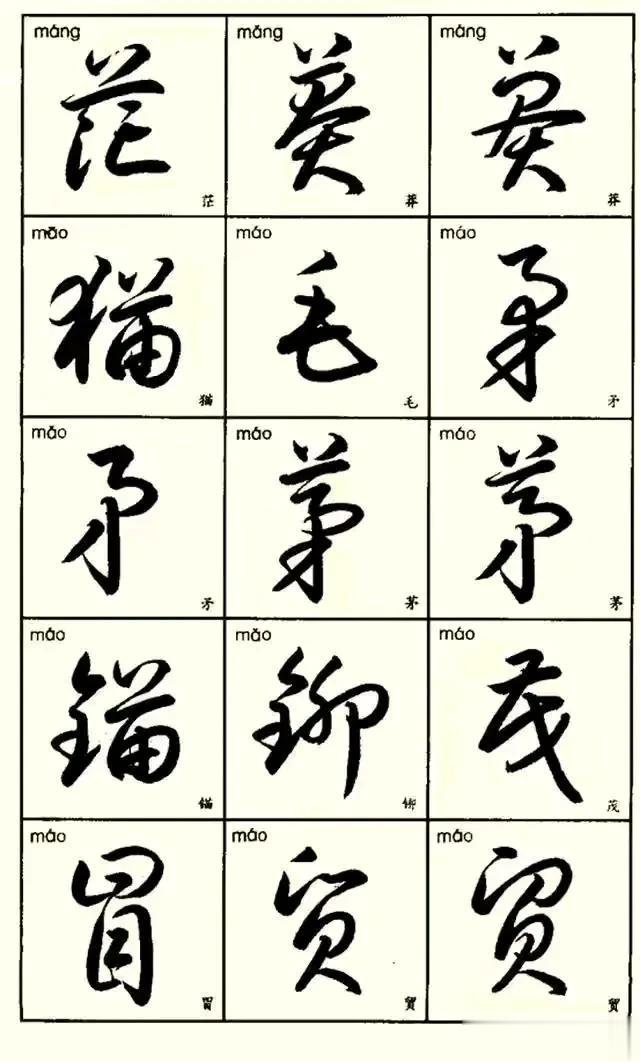 máng mǎng máng
茫 莽 莽
茫 莽 莽
māo máo máo
猫 毛 矛
猫 毛 矛
mǎo máo máo
矛 茅 茅
矛 茅 茅
máo mǎo máo
锚 铆 茂
锚 铆 茂
máo máo máo
冒 贸 贸
冒 贸 贸